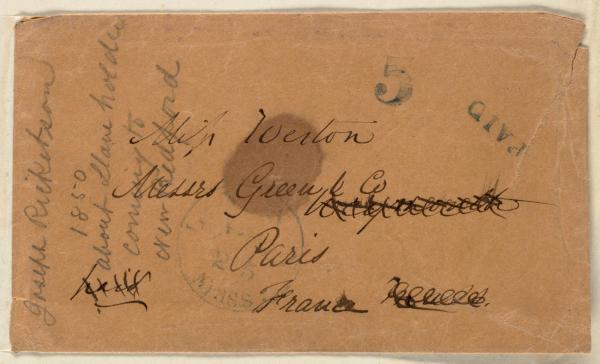 Miss Weston
Messrs Green & Co
Paris
France
5
PAID
MASS
Joseph Ricketson
1850
about slave holder
coming to
New Bedford
paid